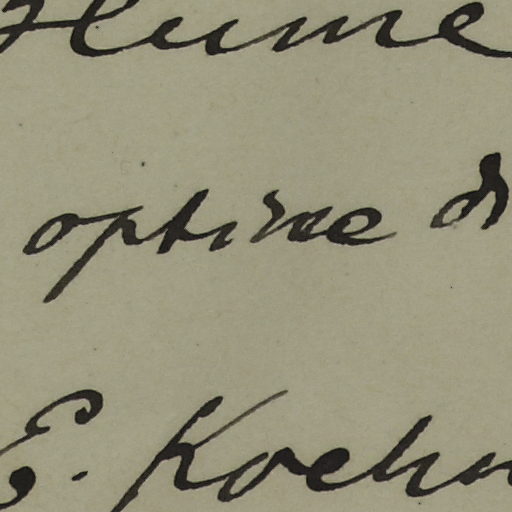 Hume
optime
E. Koehn